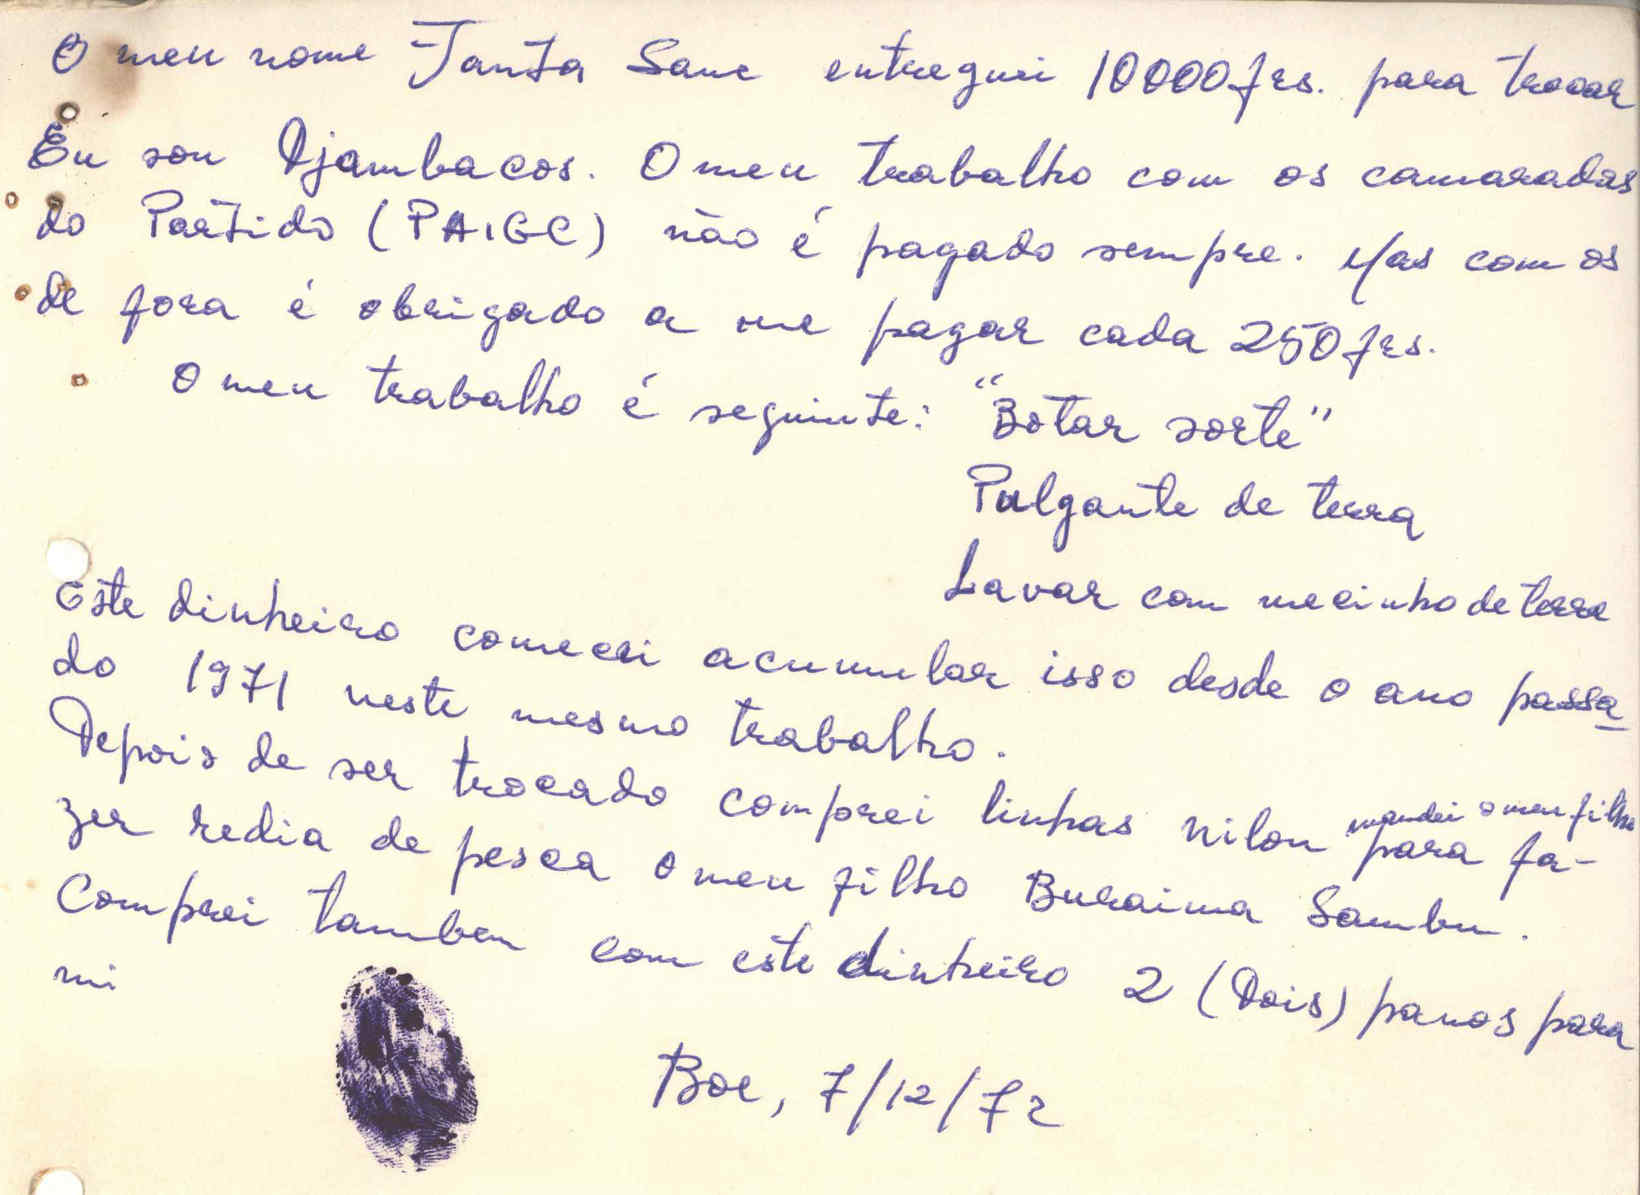 O meu nome Janta Sane entreguei 10000 frs. para trocar
Eu sou Djambacos. O meu trabalho com os camaradas
do Partido (PAIGC) não é pagado sempre. Mas com os
de fora é obrigado a me pagar cada 250 frs.
O meu trabalho é seguinte: "Botar sorte"
Pulgante de terra
Lavar com mecinho de terra
Este dinheiro comecei acumular isso desde o ano passa
do 1971 neste mesmo trabalho.
Depois de ser trocado comprei linhas nilon mandei o meu filho para fa-
zer redia de pesca o meu filho Buraima Sambu.
Comprei tambem com este dinheiro 2 (Dois) panos para
mi
Boe, 7/12/72